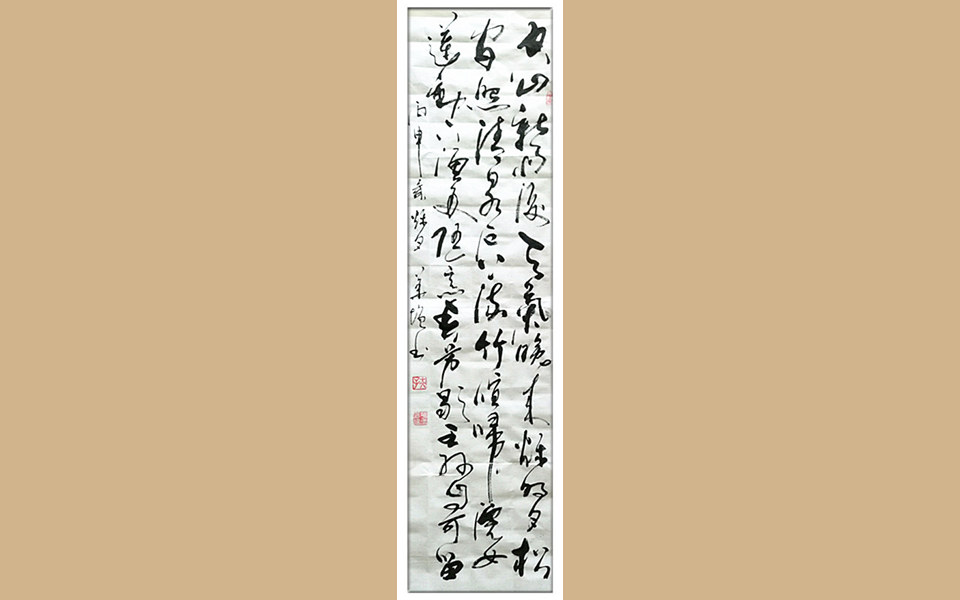 空山新雨後天氣晚來秋明月松
間照清泉石上流竹喧歸浣女
蓮動下漁舟隨意春芳歇王孫自可留
丙申年秋月華增书